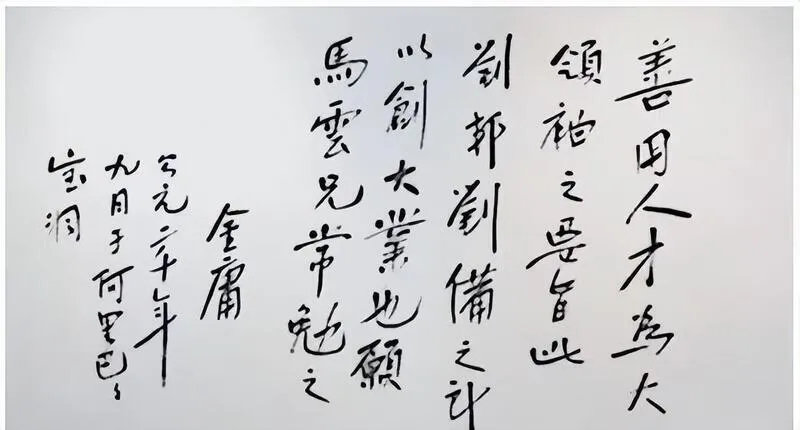 善用人才為大
領袖之要旨此
劉邦劉備之所
以創大業也願
馬雲兄常勉之
金庸
公元二千年
九月于阿里巴巴
宝洞